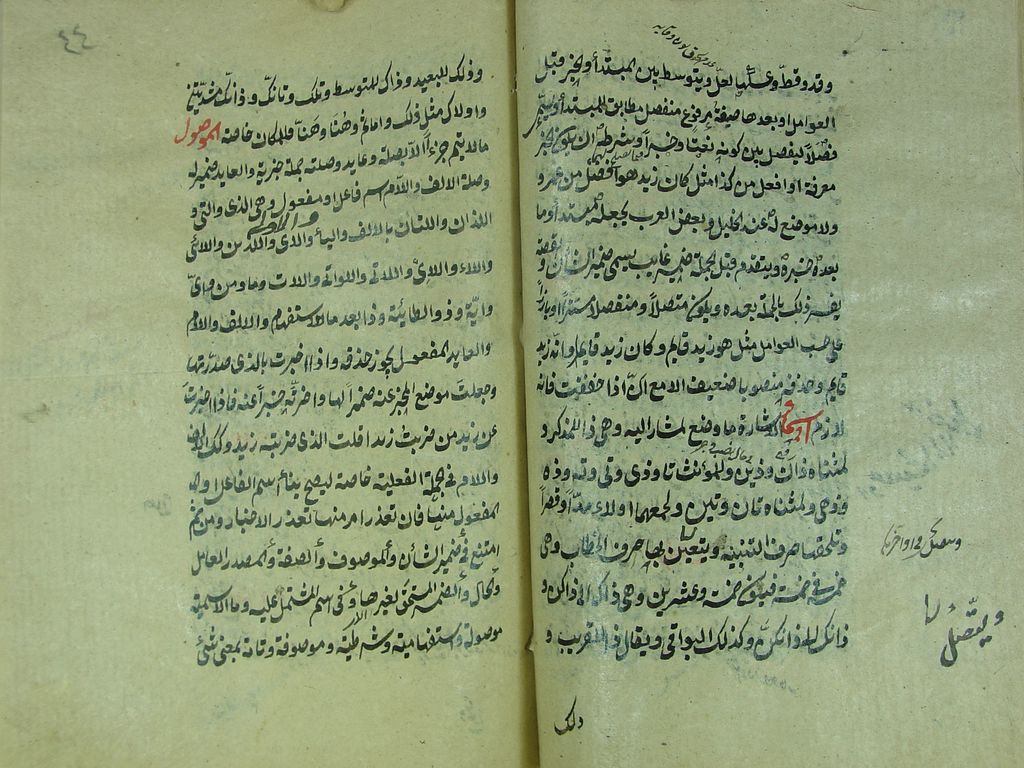 وقد وقط وعكسها لعل ويتوسط بين المبتدأ والخبر قبل
العوامل او بعدها صيغة مرفوع منفصل مطابق للمبتدأ ويسمى
فصلا ليفصل بين كونه نعتا وخبرا وشرطه ان يكون الخبر
معرفة او افعل من كذا مثل كان زيد هو افضل من عمرو
ولا موضع له عند الخليل وبعض العرب يجعله مبتدأ وما
بعده خبره ويتقدم قبل الجملة ضمير غايب يسمى ضمير الشان والقصة
يفسر ذلك بالجملة بعده ويكون متصلا ومنفصلا مستترا وبارزا
على حسب العوامل مثل هو زيد قايم وكان زيد قايم وانه زيد
قايم وحذفه منصوبا ضعيف الا مع ان اذا خففت فانه
لازم اسماء الاشارة ما وضع لمشار اليه وهي ذا للمذكر و
لمثناه ذان وذين وللمؤنث تا وذي وتي وته وذه
وذهي ولمثناه تان وتين ولجمعهما اولاء مدا وقصرا
وتلحقها حرف التنبيه ويتصل بها حرف الخطاب وهي
خمسة في خمسة فيكون خمسة وعشرين وهي ذاك الى ذاكن و
ذانك الى ذانكن وكذلك البواقي ويقال ذا للقريب و
ويتصل
ذلك
٤٤
وذلك للبعيد وذاك للمتوسط وتلك وتانك وذانك مشددتين
واولالك مثل ذلك واما ثم وهنا وهنا فللمكان خاصة الموصول
ما لا يتم جزءا الا بصلة وعايد وصلته جملة خبرية والعايد ضمير له
وصلة الالف واللام اسم فاعل او مفعول وهي الذي والتي و
اللذان واللتان بالالف والياء والاولى والذين واللائي
واللاء واللاي واللاتي واللواتي واللات وما ومن واي
واية وذو الطائية وذا بعد ما للاستفهام والالف واللام
والعايد المفعول يجوز حذفه واذا اخبرت بالذي صدرتها
وجعلت موضع المخبر عنه ضميرا لها واخرته خبرا عنه فاذا اخبرت
عن زيد من ضربت زيدا قلت الذي ضربته زيد وكذلك الالف
واللام في الجملة الفعلية خاصة ليصح بناء اسم الفاعل او
المفعول منها فان تعذر امر منها تعذر الاخبار ومن ثم
امتنع في ضمير الشأن والموصوف والصفة والمصدر العامل
والحال والضمير المستحق لغيرها وفي اسم المشتمل عليه وما الاسمية
موصولة واستفهامية وشرطية وموصوفة وتامة بمعنى شئ